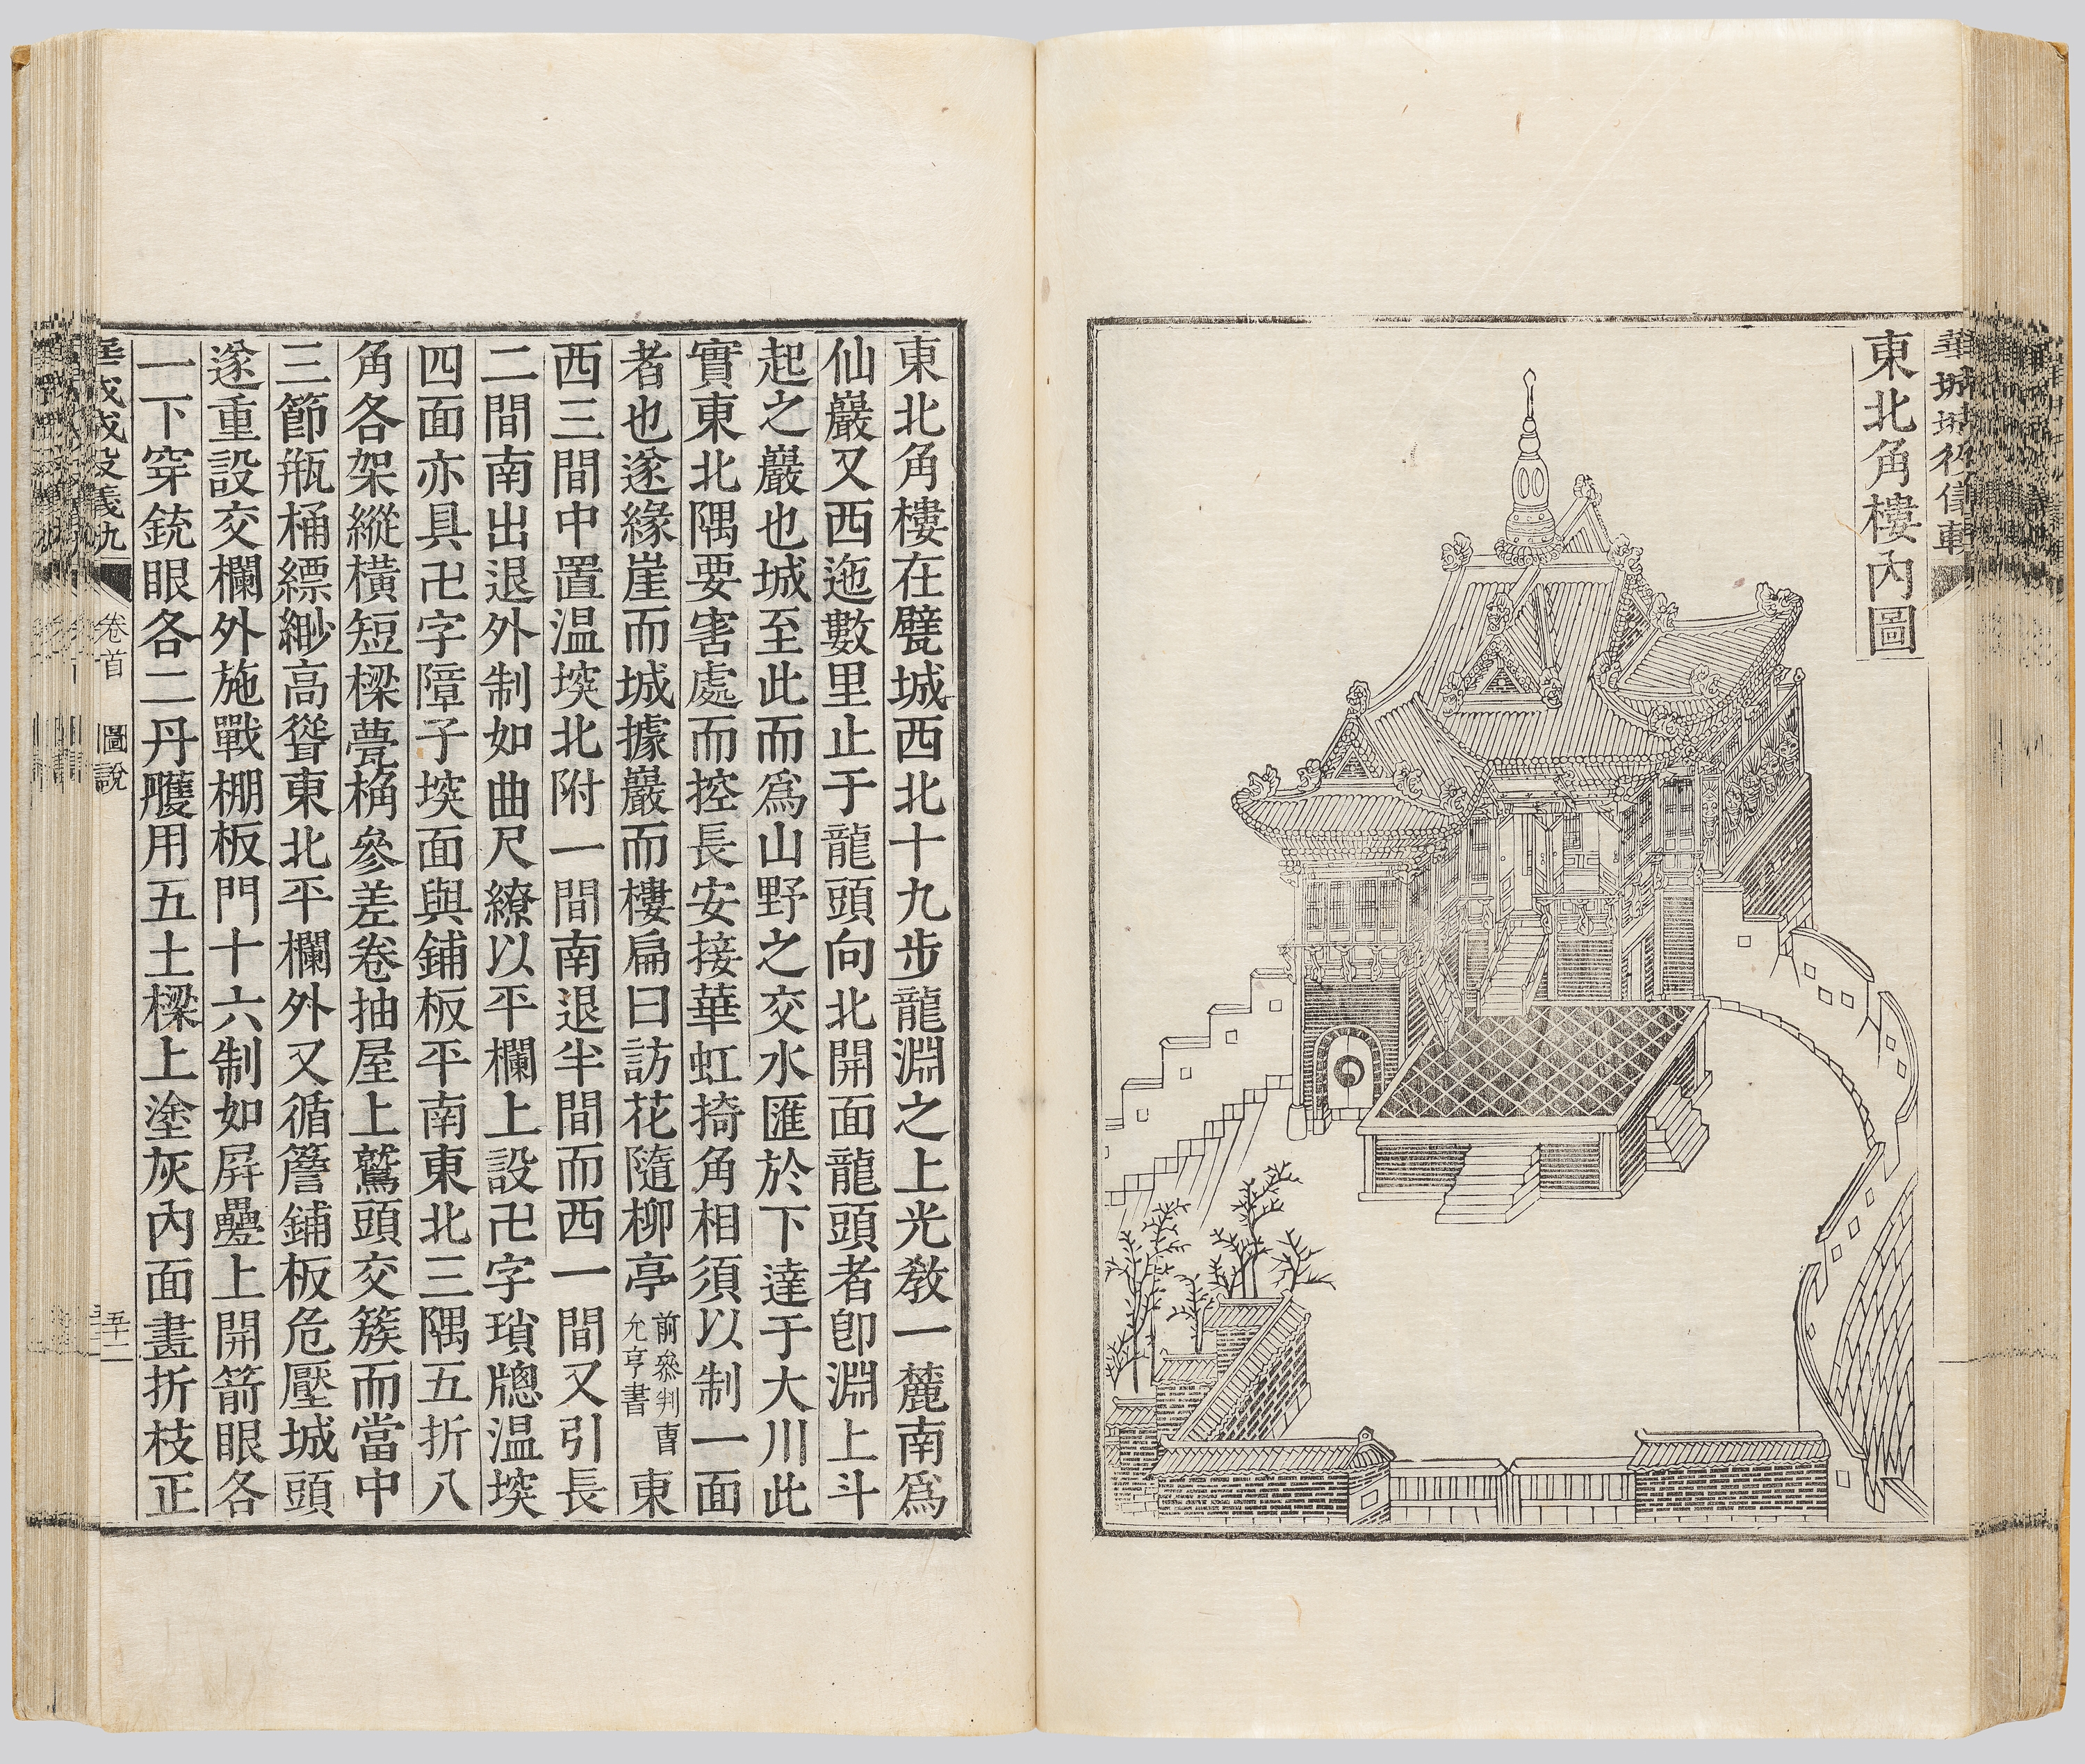 東北角樓內圖
東北角樓在甓城西北十九步龍淵之上光敎一麓南爲
仙巖又西迤數里止于龍頭向北開面龍頭者卽淵上斗
起之巖也城至此而爲山野之交水匯於下達于大川此
實東北隅要害處而控長安接華虹掎角相須以制一面
者也遂緣崖而城據巖而樓扁曰訪花隨柳亭前叅判曺允亨書東
西三間中置溫堗北附一間南退半間而西一間又引長
二間南出退外制如曲尺繚以平欄上設卍字瑣牕溫堗
四面亦具卍字障子堗面與鋪板平南東北三隅五折八
角各架縱橫短樑甍桷參差卷抽屋上鷲頭交簇而當中
三節甁桶縹緲高聳東北平欄外又循簷鋪板危壓城頭
遂重設交欄外施戰棚板門十六制如屛疊上開箭眼各
一下穿銃眼各二丹雘用五土樑上塗灰內面畫折枝正
卷首 圖說 五十二